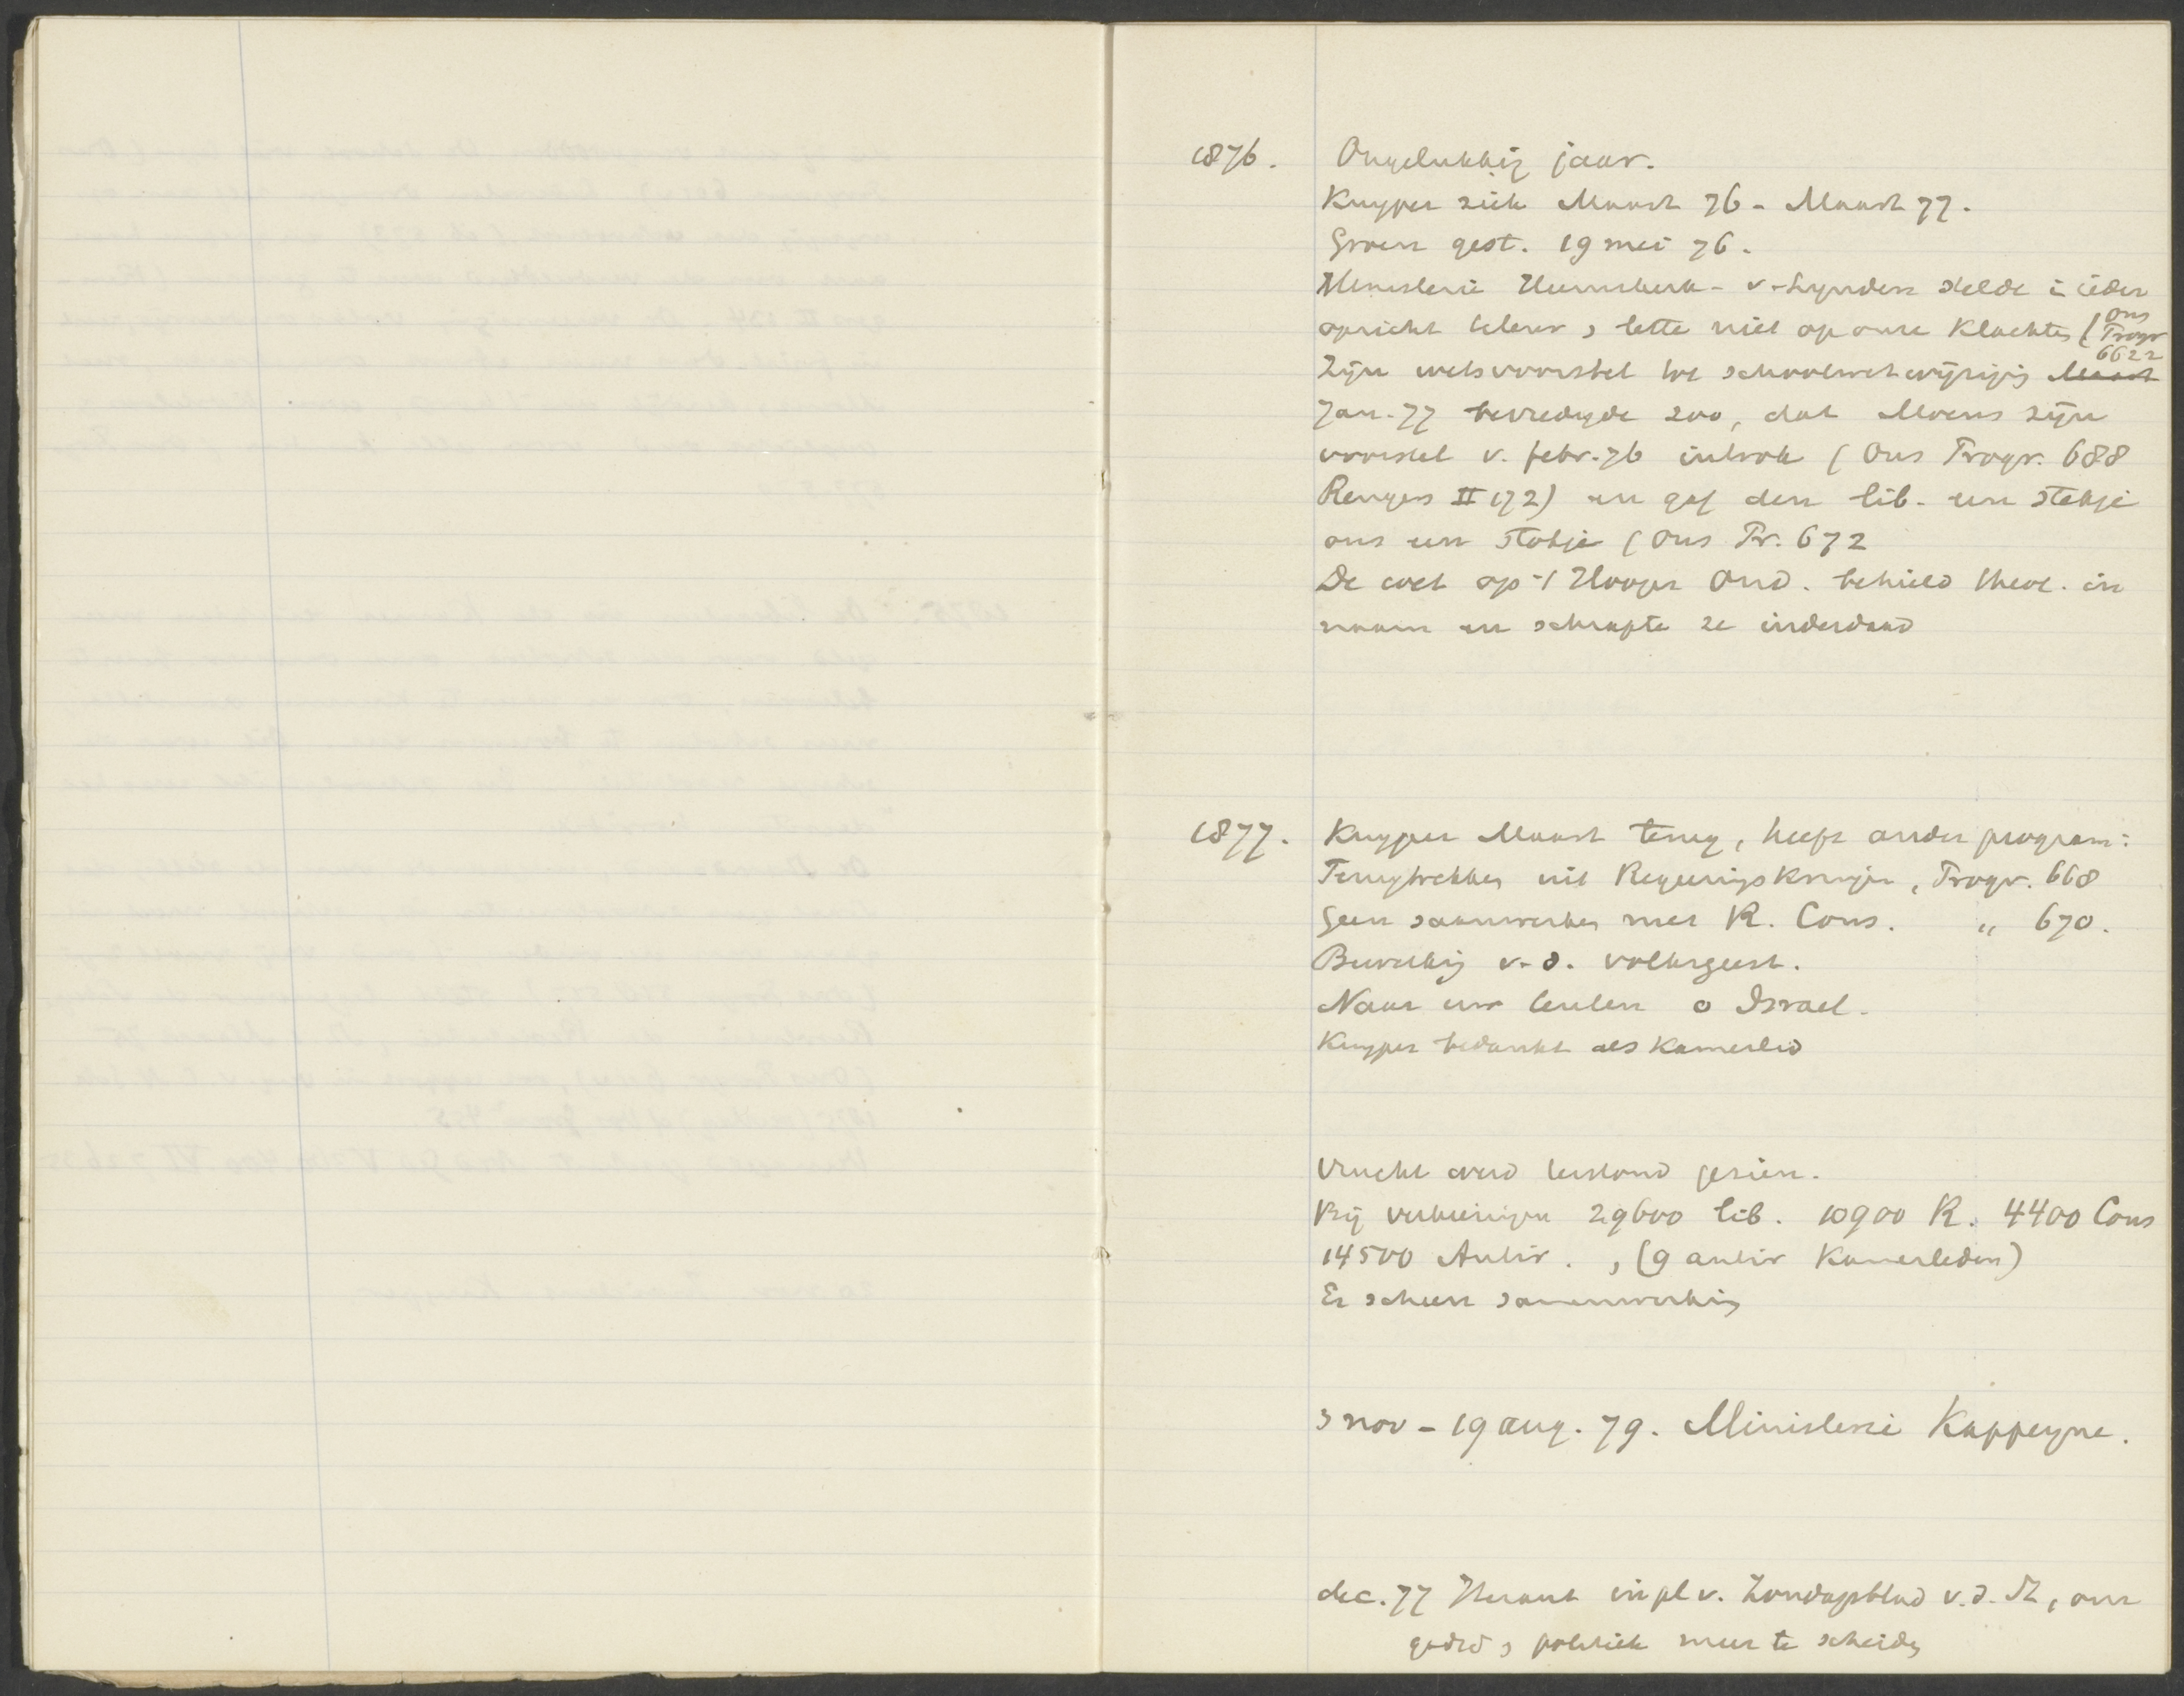 1876. Ongelukkig jaar.
Kuyper ziek Maart 76 - Maart 77.
Groen gest. 19 mei 76.
Ministerie Heemskerk - v-Lynden stelde in ieder
opzicht teleur, lette niet op onze klachten (Ons Progr 662
Zijn wetsvoorstel tot schoolwetwijziging Maart
Jan-77 bevredigde zoo, dat Moens zijn
voorstel v. febr. 76 introk (Ons Progr. 688
Rengers II 172) en gaf den lib. een stekje
ons een stokje (Ons Pr. 672
De wet op 't Hooger Ond. behield theol. in
naam en schrapte ze inderdaad
1877. Kuyper Maart terug, heeft ander program:
Terugtrekken uit Regeeringskringen, Progr. 668
Geen samenwerken met R. Cons. " 670.
Bewerking v. d. volksgeest.
Naar uw tenten o Israel.
Kuyper bedankt als Kamerlid
Vrucht werd terstond gezien.
Bij verkiezingen 29600 lib. 10900 R. 4400 Cons
14500 Antir., (9 antir Kamerleden)
Er scheen samenwerking
3 nov - 19 aug. 79. Ministerie Kappeyne.
dec. 77 Heraut in pl v. Zondagsblad v. d. St, om
godsd, politiek meer te scheiden